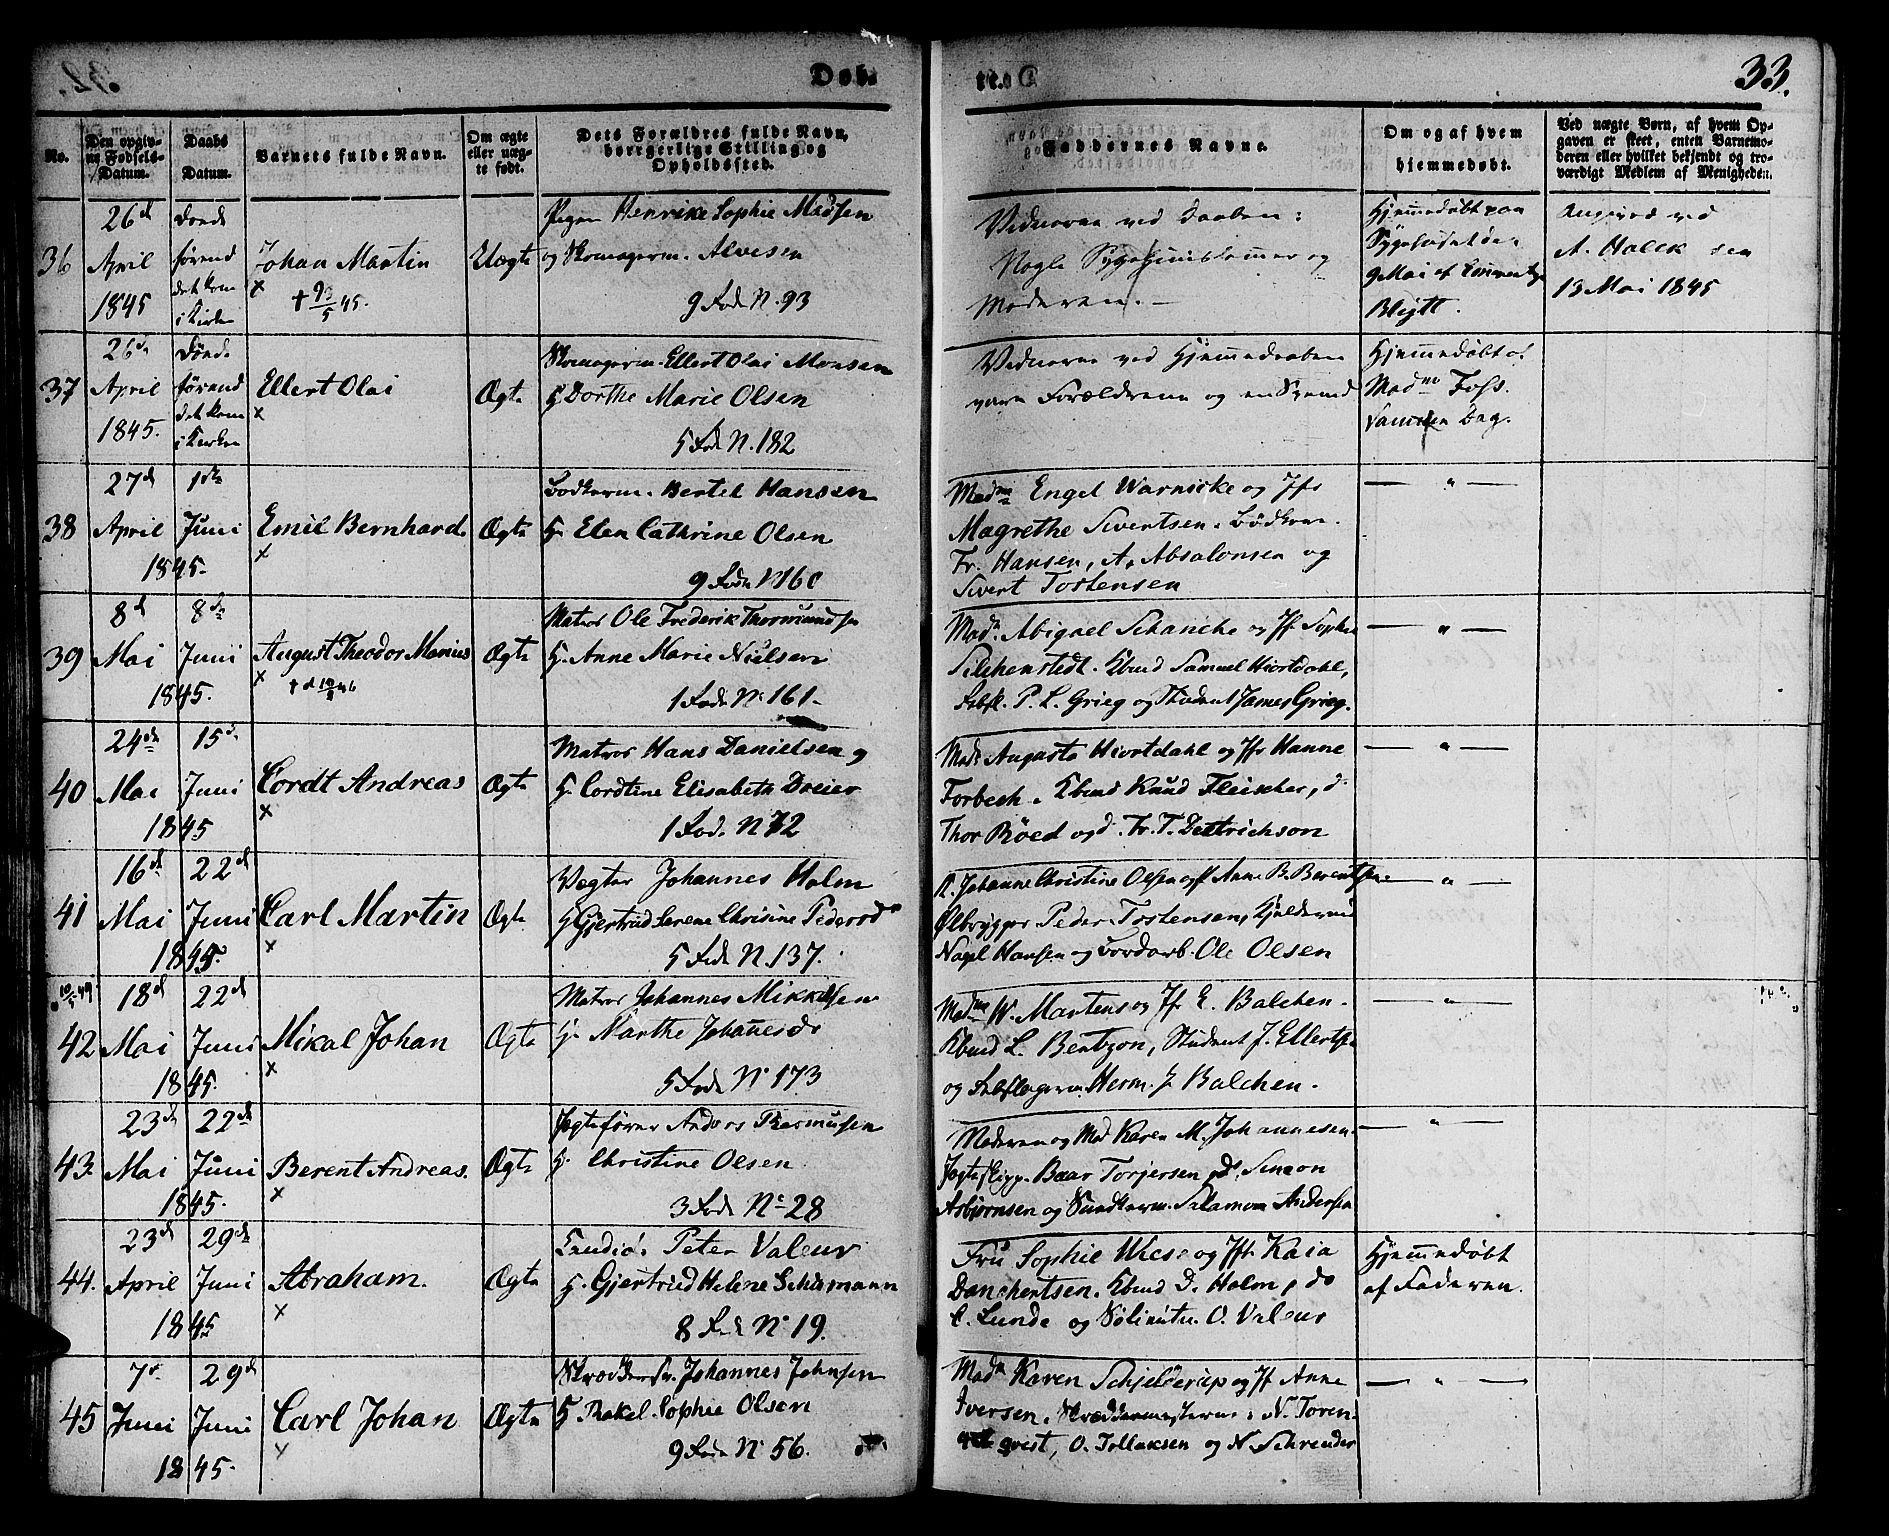 33.
Døb-
No.
Den opgivne Fødsels-Datum.
Daabs Datum.
Barnets fulde Navn.
Om ægte eller uægte født.
Dets Forældres fulde Navn, borgerlige Stilling og Opholdssted.
Faddernes Navne.
Om og af hvem hjemmedøbt.
Ved uægte Børn, af hvem Opgaven er skeet, enten Barnemoderen eller hvilket bekjendt og troværdigt Medlem af Menigheden.
36
26d April 1845
Døende førend det kom i Kirken
Johan Martin
x
Uægte
Pigen Henrike Sophie Madsen
og Skomagerm. Alvesen
9 Fode N. 93
Vidnerne ved Daaben:
Nogle
og
Moderen. —
Hjemmedøbt paa
9 Mai af
Blytt.
Angived ved
A. Holck den
13 Mai 1845
37
26de April 1845.
Døende førend det kom i Kirken
Ellert Olai
x
Ægte
Skomagerm. Ellert Olai Monsen
H. Dorthe Marie Olsen
5 Fode N. 182
Vidnerne ved Hjemmedaaben
vare Forældrene og en Svend
Hjemmedøbt af
Madme Foss.
Samme Dag.
38
27d April 1845.
1ste Juni
Emil Bernhard.
x
Ægte
Bødkerm. Bertel Hansen
H. Elen Cathrine Olsen
9 Fode N 160
Madme Engel Warnicke og Jfr
Magrethe Sivertsen. Bødkerm.
Fr. Hansen, A. Absalonsen og
Sivert Tostensen
— " —
39
8d Mai 1845.
8de Juni
August Theodor Marius
x
Ægte
Matros Ole Frederik Thormundsen
H. Anne Marie Nielsen
1 Fode No 161.
Madm Abigael Schancke og Jfr Sophie
Silchenstedt. Kbmd Samuel Hiortdahl,
P. L. Grieg og Student James Grieg.
— " —
40
24de Mai 1845
15d Juni
Cordt Andreas
x
Ægte
Matros Hans Danielsen og
H. Cordtine Elisabeth Dreier
1 Fod. N 72
Madm Augusta Hiortdahl og Jfr Hanne
Forbech. Kbmd Knud Fleischer, d.
Thor Røed og d. Fr. T. Dettrichson
— " —
41
16d Mai 1845
22d Juni
Carl Martin
x
Ægte
Vægter Johannes Holm
H. Gjertrud Serene Chrisine Pedersd
5 Fode N. 137.
K. Johanne Christine Olsen og P. Anne B. Berentsen.
Ølbrygger Peder Tostensen,
Nagel Hansen og Jordarb. Ole Olsen
— " —
42
18d Mai 1845.
22d Juni
Mikal Johan
x
Ægte
Matros Johannes Mikkelsen
H. Marthe Johannesdr
5 Fode No 173
Madme W. Martens og Jfr E. Balchen.
Kbmd L. Bentzon, Student J. Ellertsen
og Herm. J. Balchen.
— " —
43
23d Mai 1845.
22de Juni
Berent Andreas.
x
Ægte
Jagtefører Anders Rasmusen
H. Christine Olsen
3 Fode No 28
Moderen og Mad Karen M. Johannesen.
Jagteskipp. Baar Torjersen, d. Simeon
Asbjørnsen og Salamon Andersen
— " —
44.
23d April 1845
29de Juni
Abraham.
x
Ægte
Peter Valeur
H. Gjertrud Helene Schermann
8 Fode No 19.
Fru Sophie Wiese og Jfr Kaia
Danchertsen. Kbmd D. Holm, do
C. Lunde og O. Valeur
Hjemmedøbt
af Faderen.
45
7d Juni 1845.
29d Juni
Carl Johan
x
Ægte
Skrædder Johannes Johnsen
H. Rakel Sophie Olsen
9 Fode No 56.
Madm Karen Schjelderup og Jfr Anne
Iversen. Skræddermesterne: N. Toren-
qvist, O. Tollaksen og N. Schreuder
— " —